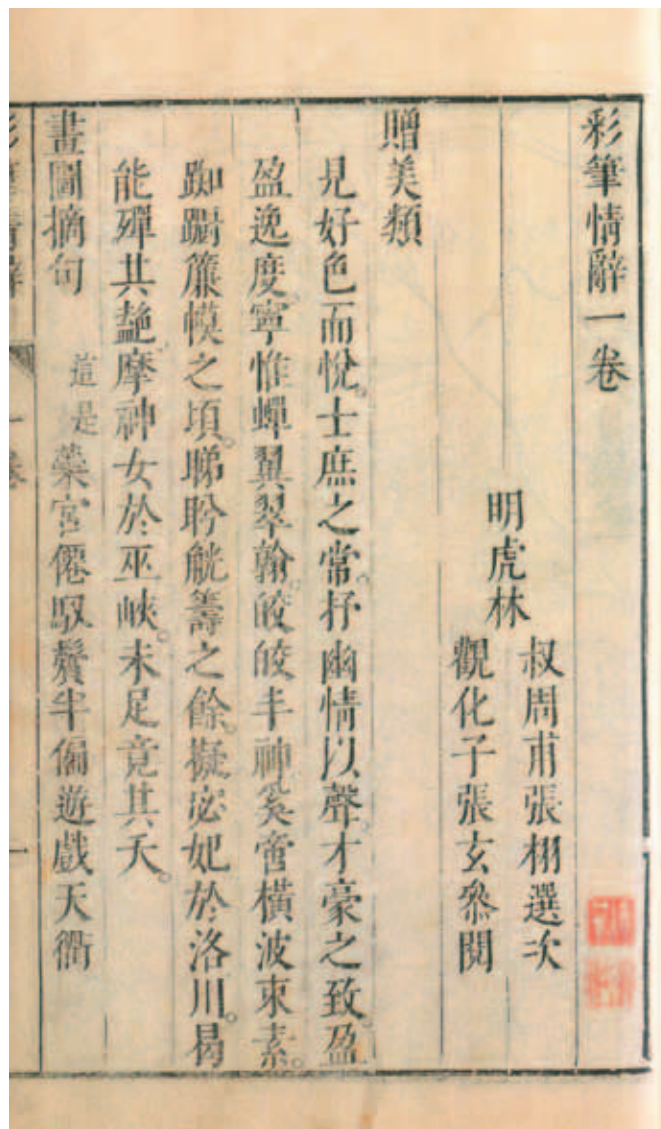 彩筆情辭一卷
明虎林
叔周甫張栩選次
觀化子張玄參閱
贈美類
見好色而悅。士庶之常。抒幽情以聲。才豪之致。盈
盈逸度。寧惟蟬翼翠翰。皎皎丰神。奚啻橫波束素。
踟躕簾幙之頃。睇盻觥籌之餘。擬宓妃於洛川。曷
能殫其艶。摩神女於巫峽。未足竟其夭。
畫圖摘句 這是蘂宮僊馭鬢半偏遊戲天衢
彩筆情辭 一卷 一